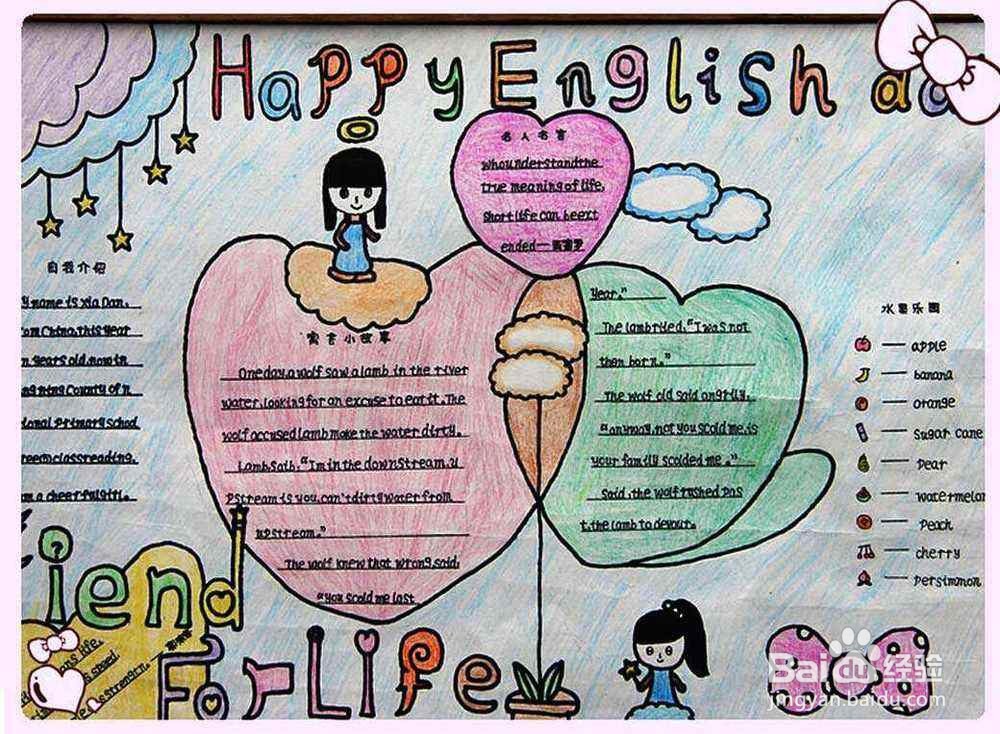 Happy English
名人名言
whounderstandthe
true meaning of life,
Short life can be ext
ended—
自我介绍
y name is xia Dan,
om China, this year
n years old, now in
ng ning County of n
ional primary school
reen class reading,
m a cheerful girl.
寓言小故事
One day, a wolf saw a lamb in the river
water, looking for an excuse to eat it. The
wolf accused lamb make the water dirty.
Lamb saib, "I'm in the downstream, u
pstream is you, can't dirty water from
upstream."
The wolf knew that wrong, said,
"you scold me last
Year."
The lamb ryled, "I was not
then born."
The wolf old said angrily,
"anyway, not you scold me, is
your family scolded me."
Said, the wolf rushed pas
t, the lamb to devour.
水果乐园
— apple
— banana
— orange
— Sugar cane
— pear
— watermelon
— Peach
— cherry
— persimmon
iend
ons life.
speed.
strength.
For Life
Baidu 经验
jingyan.baidu.com